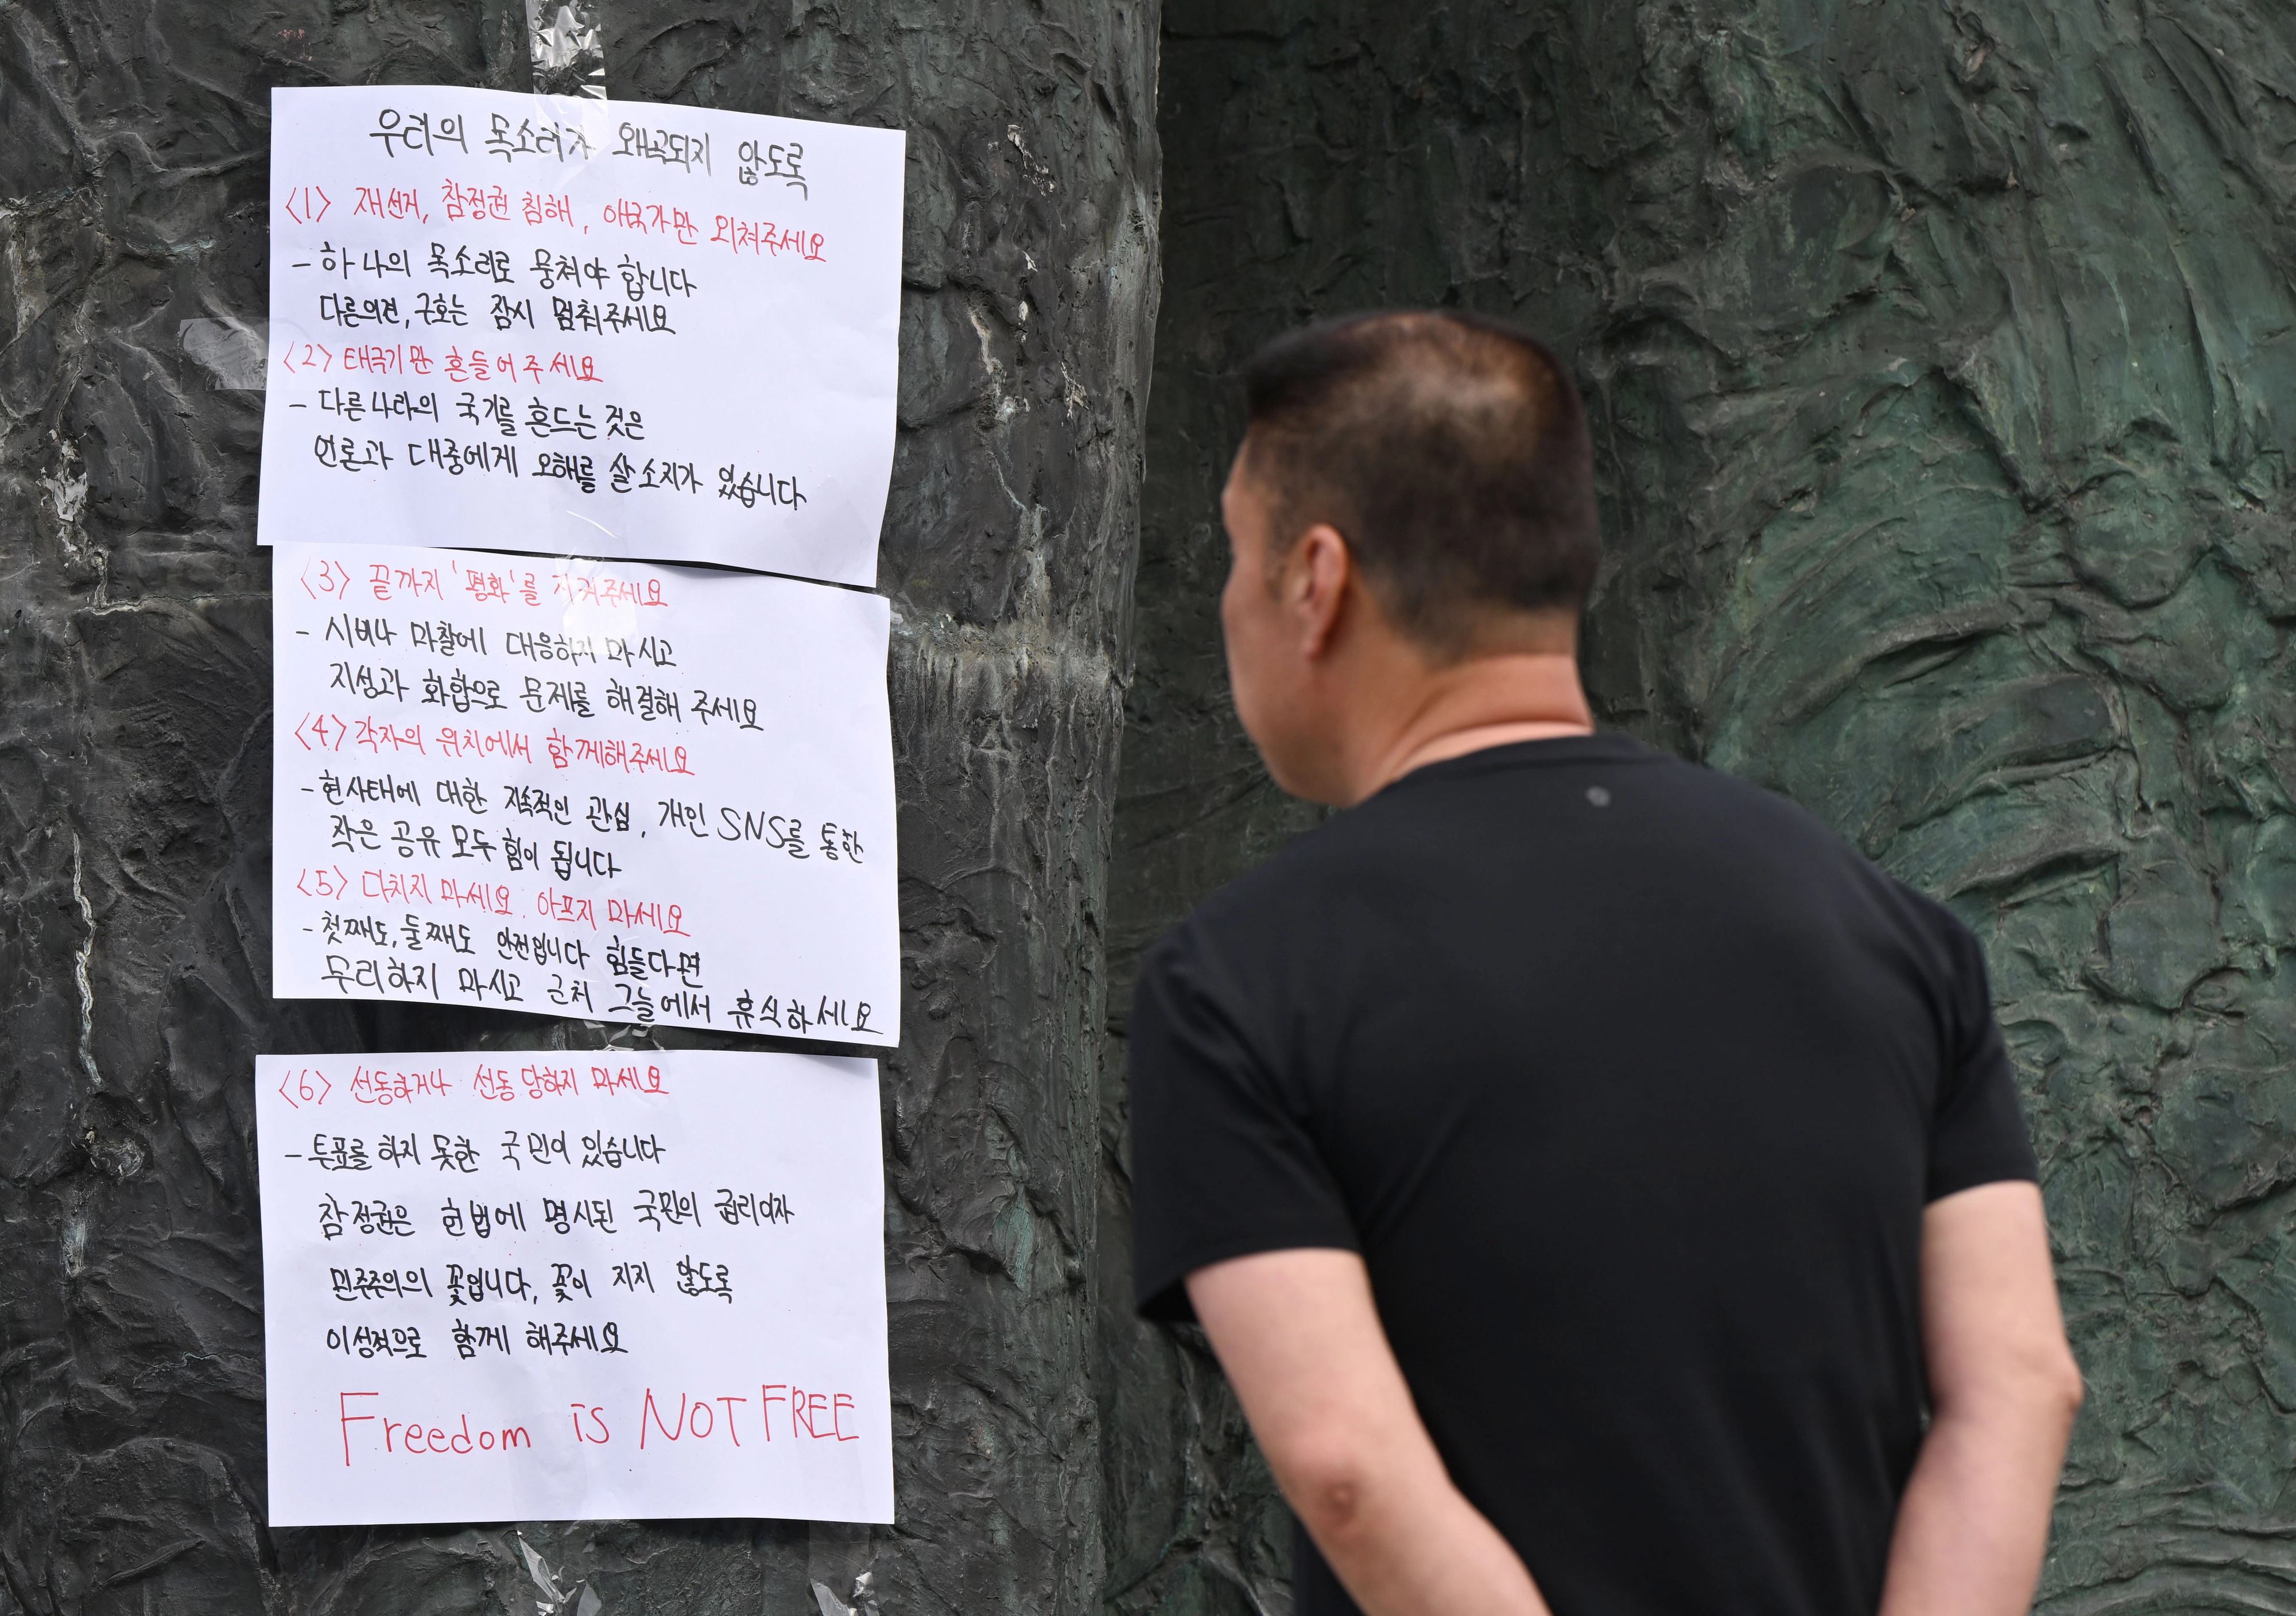 우리의 목소리가 왜곡되지 않도록
<1> 재선거, 참정권 침해, 애국가만 외쳐주세요
- 하나의 목소리로 뭉쳐야 합니다
다른의견, 구호는 잠시 멈춰주세요
<2> 태극기만 흔들어주세요
- 다른나라의 국기를 흔드는 것은
언론과 대중에게 오해를 살 소지가 있습니다
<3> 끝까지 '평화'를 지켜주세요
- 시비나 마찰에 대응하지 마시고
지성과 화합으로 문제를 해결해 주세요
<4> 각자의 위치에서 함께해주세요
- 현사태에 대한 지속적인 관심, 개인 SNS를 통한
작은 공유 모두 힘이 됩니다
<5> 다치지 마세요. 아프지 마세요
- 첫째도, 둘째도 안전입니다 힘들다면
무리하지 마시고 근처 그늘에서 휴식하세요
<6> 선동하거나 선동 당하지 마세요
- 투표를 하지 못한 국민이 있습니다
참정권은 헌법에 명시된 국민의 권리이자
민주주의의 꽃입니다, 꽃이 지지 않도록
이성적으로 함께 해주세요
Freedom is NOT FREE